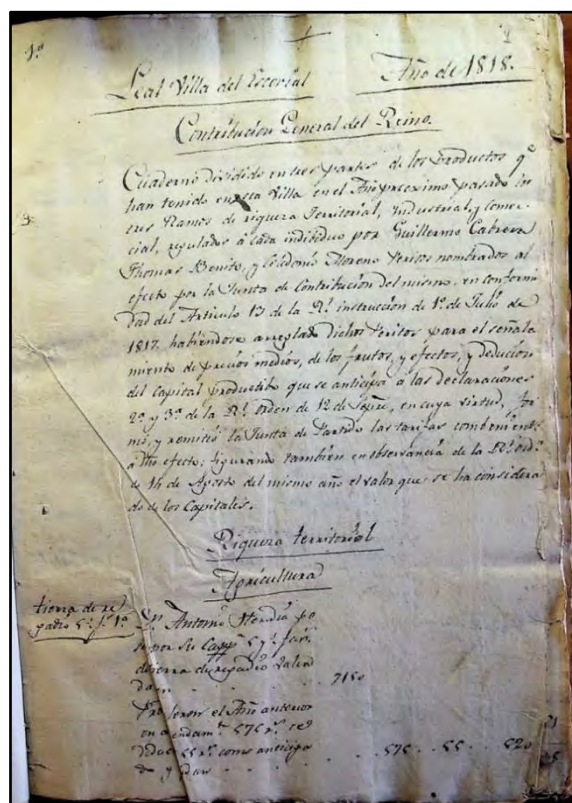 1º
1
Leal Villa del Escorial Año de 1818.
Contribucion General del Reino.
Cuaderno dividido en tres partes de los productos qᵉ
han tenido en esta Villa en el Año proximo pasado los
tres Ramos de riqueza Territorial, Industrial, y Comer-
cial, regulados á cada individuo por Guillermo Cabrera
Thomas Benito, y Celedonio Moreno Peritos nombrados al
efecto por la Junta de Contribucion del mismo, en conformi
dad del Articulo 13 de la Rˡ instruccion de 1º de Julio de
1817. habiendose arreglado dichos Peritos para el señala
miento de precios medios, de los frutos, y efectos, y deducion
del Capital productibo que se anticipa á las declaraciones
2ª y 3ª de la Rˡ orden de 12 de Sepᵉ, en cuya virtud, for
mó, y remitió la Junta de Partido las tarifas
á dho efecto; figurando tambien en observancia de la Rˡ ordⁿ
de 16 de Agosto del mismo año el valor que se ha considera
do de los Capitales.
Riqueza territorial
Agricultura
tierra de re
gadio
Dⁿ Antonio Heredia po
se por su
de tierra de regadio
7150
Produjeron el Año anterior
en arrendamᵗᵒ 575 rˢ
55 rˢ como anticipa
575 . . 55 . . 520